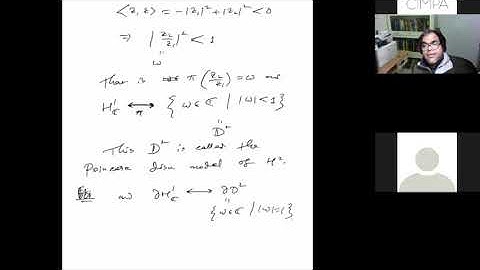 ⟨z, z⟩ = -|z₁|² + |z₂|² < 0
⇒ |z₂/z₁|² < 1
"
w
That is π(z₂/z₁) = w and
H¹_ℂ ⟷ {w ∈ ℂ | |w| < 1}
π
"
D²
This D² is called the
Poincare disc model of H².
and ∂H¹_ℂ ⟷ ∂D²
"
{w ∈ ℂ | |w| = 1}
CIMPA